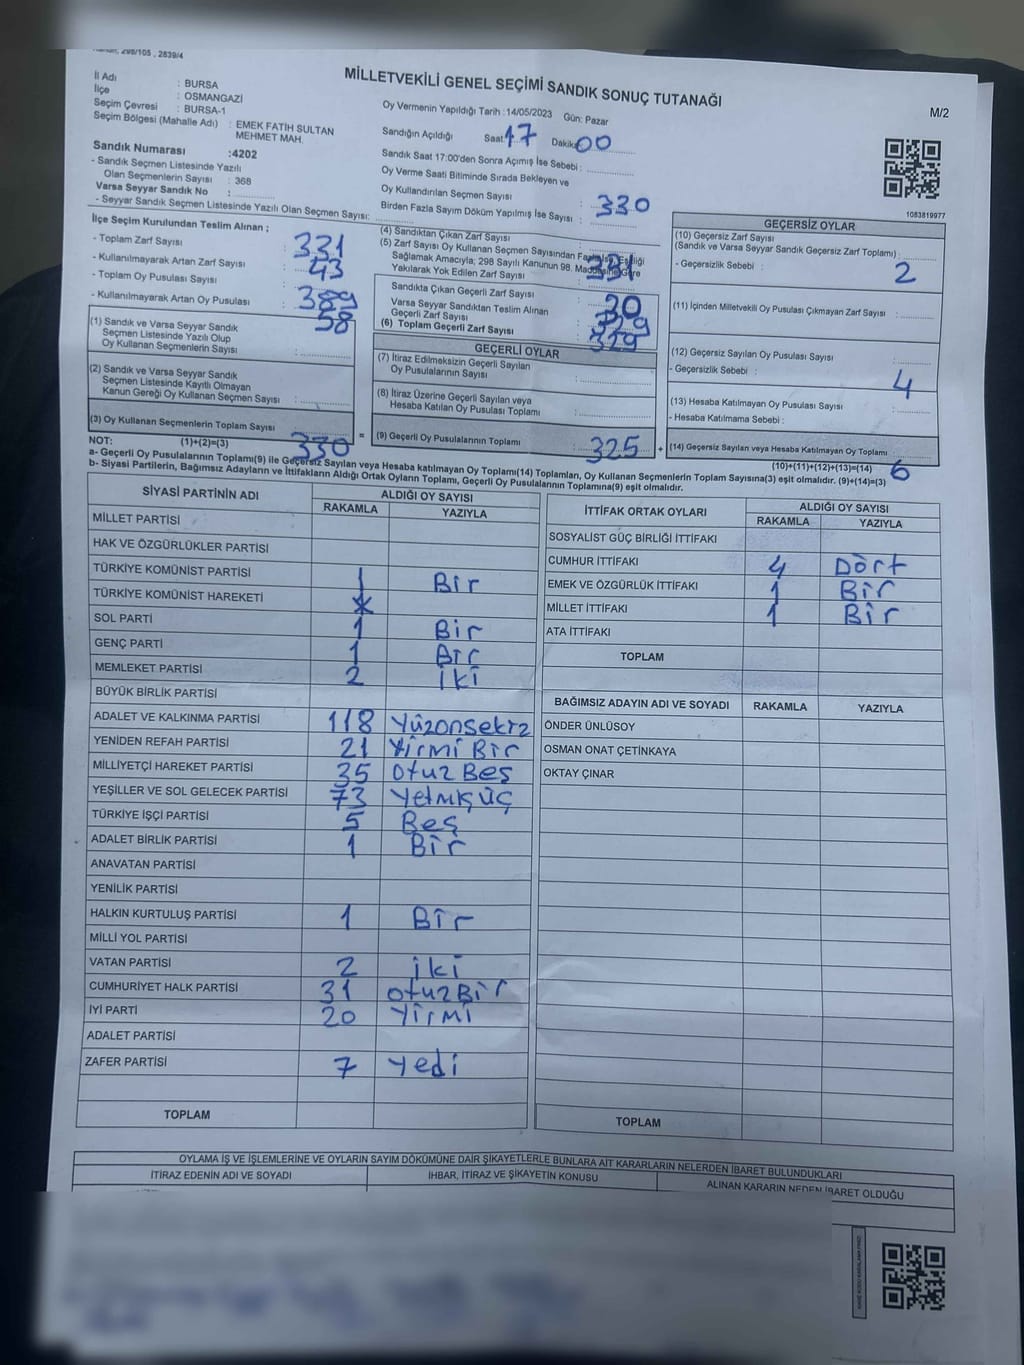 Kanun, 298/105 , 2839/4
MİLLETVEKİLİ GENEL SEÇİMİ SANDIK SONUÇ TUTANAĞI
M/2
İl Adı : BURSA
İlçe : OSMANGAZİ
Seçim Çevresi : BURSA-1
Seçim Bölgesi (Mahalle Adı) : EMEK FATİH SULTAN
MEHMET MAH.
Sandık Numarası :4202
- Sandık Seçmen Listesinde Yazılı
Olan Seçmenlerin Sayısı : 368
Varsa Seyyar Sandık No :
- Seyyar Sandık Seçmen Listesinde Yazılı Olan Seçmen Sayısı:
Oy Vermenin Yapıldığı Tarih : 14/05/2023 Gün: Pazar
Sandığın Açıldığı Saat 17 Dakika 00
Sandık Saat 17:00'den Sonra Açımış İse Sebebi :
Oy Verme Saati Bitiminde Sırada Bekleyen ve
Oy Kullandırılan Seçmen Sayısı :
Birden Fazla Sayım Döküm Yapılmış İse Sayısı : 330
1083819977
İlçe Seçim Kurulundan Teslim Alınan ;
- Toplam Zarf Sayısı : 331
- Kullanılmayarak Artan Zarf Sayısı : 43
- Toplam Oy Pusulası Sayısı :
- Kullanılmayarak Artan Oy Pusulası : 389
58
(1) Sandık ve Varsa Seyyar Sandık
Seçmen Listesinde Yazılı Olup
Oy Kullanan Seçmenlerin Sayısı :
(2) Sandık ve Varsa Seyyar Sandık
Seçmen Listesinde Kayıtlı Olmayan
Kanun Gereği Oy Kullanan Seçmen Sayısı :
(3) Oy Kullanan Seçmenlerin Toplam Sayısı :
(1)+(2)=(3) 330
(4) Sandıktan Çıkan Zarf Sayısı :
(5) Zarf Sayısı Oy Kullanan Seçmen Sayısından Fazla İse, Eşitliği
Sağlamak Amacıyla; 298 Sayılı Kanunun 98. Maddesine Göre
Yakılarak Yok Edilen Zarf Sayısı : 331
Sandıkta Çıkan Geçerli Zarf Sayısı :
Varsa Seyyar Sandıktan Teslim Alınan
Geçerli Zarf Sayısı :
(6) Toplam Geçerli Zarf Sayısı : 329
GEÇERLİ OYLAR
(7) İtiraz Edilmeksizin Geçerli Sayılan
Oy Pusulalarının Sayısı :
(8) İtiraz Üzerine Geçerli Sayılan veya
Hesaba Katılan Oy Pusulası Toplamı :
= (9) Geçerli Oy Pusulalarının Toplamı : 325 +
GEÇERSİZ OYLAR
(10) Geçersiz Zarf Sayısı
(Sandık ve Varsa Seyyar Sandık Geçersiz Zarf Toplamı) :
- Geçersizlik Sebebi : 2
(11) İçinden Milletvekili Oy Pusulası Çıkmayan Zarf Sayısı :
(12) Geçersiz Sayılan Oy Pusulası Sayısı :
- Geçersizlik Sebebi : 4
(13) Hesaba Katılmayan Oy Pusulası Sayısı :
- Hesaba Katılmama Sebebi :
(14) Geçersiz Sayılan veya Hesaba Katılmayan Oy Toplamı :
(10)+(11)+(12)+(13)=(14) 6
NOT:
a- Geçerli Oy Pusulalarının Toplamı(9) ile Geçersiz Sayılan veya Hesaba katılmayan Oy Toplamı(14) Toplamları, Oy Kullanan Seçmenlerin Toplam Sayısına(3) eşit olmalıdır. (9)+(14)=(3)
b- Siyasi Partilerin, Bağımsız Adayların ve İttifakların Aldığı Ortak Oyların Toplamı, Geçerli Oy Pusulalarının Toplamına(9) eşit olmalıdır.
SİYASİ PARTİNİN ADI ALDIĞI OY SAYISI
RAKAMLA YAZIYLA
MİLLET PARTİSİ
HAK VE ÖZGÜRLÜKLER PARTİSİ
TÜRKİYE KOMÜNİST PARTİSİ 1 Bir
TÜRKİYE KOMÜNİST HAREKETİ
SOL PARTİ 1 Bir
GENÇ PARTİ 1 Bir
MEMLEKET PARTİSİ 2 iki
BÜYÜK BİRLİK PARTİSİ
ADALET VE KALKINMA PARTİSİ 118 Yüzonsekiz
YENİDEN REFAH PARTİSİ 21 Yirmi Bir
MİLLİYETÇİ HAREKET PARTİSİ 35 Otuz Beş
YEŞİLLER VE SOL GELECEK PARTİSİ 73 Yetmişüç
TÜRKİYE İŞÇİ PARTİSİ 5 Beş
ADALET BİRLİK PARTİSİ 1 Bir
ANAVATAN PARTİSİ
YENİLİK PARTİSİ
HALKIN KURTULUŞ PARTİSİ 1 Bir
MİLLİ YOL PARTİSİ
VATAN PARTİSİ 2 iki
CUMHURİYET HALK PARTİSİ 31 otuzBir
İYİ PARTİ 20 Yirmi
ADALET PARTİSİ
ZAFER PARTİSİ 7 Yedi
TOPLAM
İTTİFAK ORTAK OYLARI ALDIĞI OY SAYISI
RAKAMLA YAZIYLA
SOSYALİST GÜÇ BİRLİĞİ İTTİFAKI
CUMHUR İTTİFAKI 4 Dört
EMEK VE ÖZGÜRLÜK İTTİFAKI 1 Bir
MİLLET İTTİFAKI 1 Bir
ATA İTTİFAKI
TOPLAM
BAĞIMSIZ ADAYIN ADI VE SOYADI RAKAMLA YAZIYLA
ÖNDER ÜNLÜSOY
OSMAN ONAT ÇETİNKAYA
OKTAY ÇINAR
TOPLAM
OYLAMA İŞ VE İŞLEMLERİNE VE OYLARIN SAYIM DÖKÜMÜNE DAİR ŞİKAYETLERLE BUNLARA AİT KARARLARIN NELERDEN İBARET BULUNDUKLARI
İTİRAZ EDENİN ADI VE SOYADI İHBAR, İTİRAZ VE ŞİKAYETİN KONUSU ALINAN KARARIN NEDEN İBARET OLDUĞU